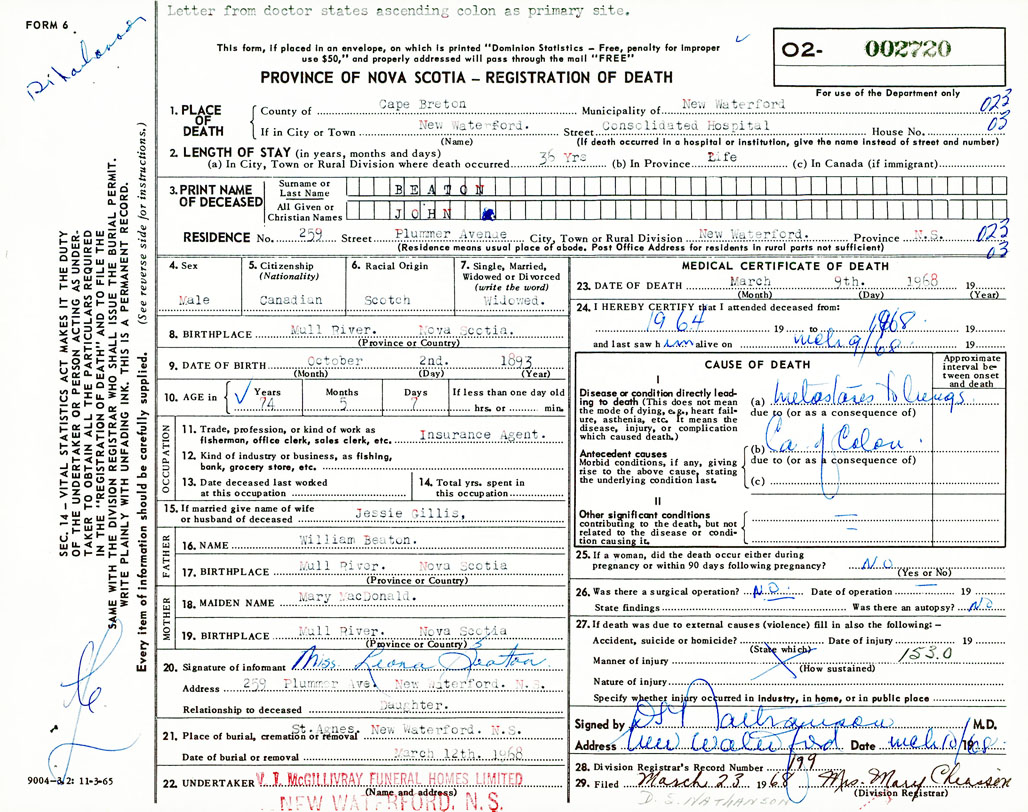 Letter from doctor states ascending colon as primary site.
FORM 6.
This form, if placed in an envelope, on which is printed "Dominion Statistics – Free, penalty for improper
use $50," and properly addressed will pass through the mail "FREE"
PROVINCE OF NOVA SCOTIA – REGISTRATION OF DEATH
O2- 002720
For use of the Department only
1. PLACE OF DEATH
County of Cape Breton Municipality of New Waterford 023
If in City or Town New Waterford. Street Consolidated Hospital House No. 03
(Name) (If death occurred in a hospital or institution, give the name instead of street and number)
2. LENGTH OF STAY (in years, months and days)
(a) In City, Town or Rural Division where death occurred 36 Yrs (b) In Province Life (c) In Canada (if immigrant)
3. PRINT NAME OF DECEASED
Surname or Last Name BEATON
All Given or Christian Names JOHN
RESIDENCE No. 259 Street Plummer Avenue City, Town or Rural Division New Waterford. Province N.S. 023
(Residence means usual place of abode. Post Office Address for residents in rural parts not sufficient) 03
4. Sex
Male
5. Citizenship
(Nationality)
Canadian
6. Racial Origin
Scotch
7. Single, Married,
Widowed or Divorced
(write the word)
Widowed.
8. BIRTHPLACE Mull River. Nova Scotia.
(Province or Country)
9. DATE OF BIRTH October 2nd. 1893
(Month) (Day) (Year)
10. AGE in Years Months Days If less than one day old
74 5 7 hrs. or min.
OCCUPATION
11. Trade, profession, or kind of work as
fisherman, office clerk, sales clerk, etc. Insurance Agent.
12. Kind of industry or business, as fishing,
bonk, grocery store, etc.
13. Date deceased last worked
at this occupation
14. Total yrs. spent in
this occupation
15. If married give name of wife
or husband of deceased Jessie Gillis,
FATHER
16. NAME William Beaton.
17. BIRTHPLACE Mull River. Nova Scotia
(Province or Country)
MOTHER
18. MAIDEN NAME Mary MacDonald.
19. BIRTHPLACE Mull River. Nova Scotia
(Province or Country)
20. Signature of informant Miss. Leona Beaton
Address 259 Plummer Ave. New Waterford. N.S.
Relationship to deceased Daughter.
21. Place of burial, cremation or removal St. Agnes. New Waterford. N.S.
Date of burial or removal March 12th. 1968
22. UNDERTAKER V. J. McGILLIVRAY FUNERAL HOMES LIMITED
(Name and address)
NEW WATERFORD, N.S.
MEDICAL CERTIFICATE OF DEATH
23. DATE OF DEATH March 9th. 1968 19
(Month) (Day) (Year)
24. I HEREBY CERTIFY that I attended deceased from:
1964 19 to 1968 19
and last saw him alive on mch 9/68 19
CAUSE OF DEATH
Approximate
interval be-
tween onset
and death
I
Disease or condition directly lead-
ing to death (This does not mean
the mode of dying, e.g., heart fail-
ure, asthenia, etc. It means the
disease, injury, or complication
which caused death.)
(a) metastases to lungs
due to (or as a consequence of)
Antecedent causes
Morbid conditions, if any, giving
rise to the above cause, stating
the underlying condition last.
(b) Ca. of Colon
due to (or as a consequence of)
(c)
II
Other significant conditions
contributing to the death, but not
related to the disease or condi-
tion causing it.
25. If a woman, did the death occur either during
pregnancy or within 90 days following pregnancy? N.O
(Yes or No)
26. Was there a surgical operation? N.O. Date of operation 19
State findings Was there an autopsy? N.O
27. If death was due to external causes (violence) fill in also the following:–
Accident, suicide or homicide? Date of injury 19
(State which)
Manner of injury 153.0
(How sustained)
Nature of injury
Specify whether injury occurred in Industry, in home, or in public place
Signed by M.D.
Address New Waterford Date mch 10/68
28. Division Registrar's Record Number 199
29. Filed March 23 1968 Mrs. Mary
(Division Registrar)
D. S. NATHANSON
SEC. 14 – VITAL STATISTICS ACT MAKES IT THE DUTY
OF THE UNDERTAKER OR PERSON ACTING AS UNDER-
TAKER TO OBTAIN ALL THE PARTICULARS REQUIRED
IN THE "REGISTRATION OF DEATH" AND TO FILE THE
SAME WITH THE DIVISION REGISTRAR WHO SHALL ISSUE THE BURIAL PERMIT.
WRITE PLAINLY WITH UNFADING INK. THIS IS A PERMANENT RECORD.
Every item of information should be carefully supplied. (See reverse side for instructions.)
9004-3/2: 11-3-65